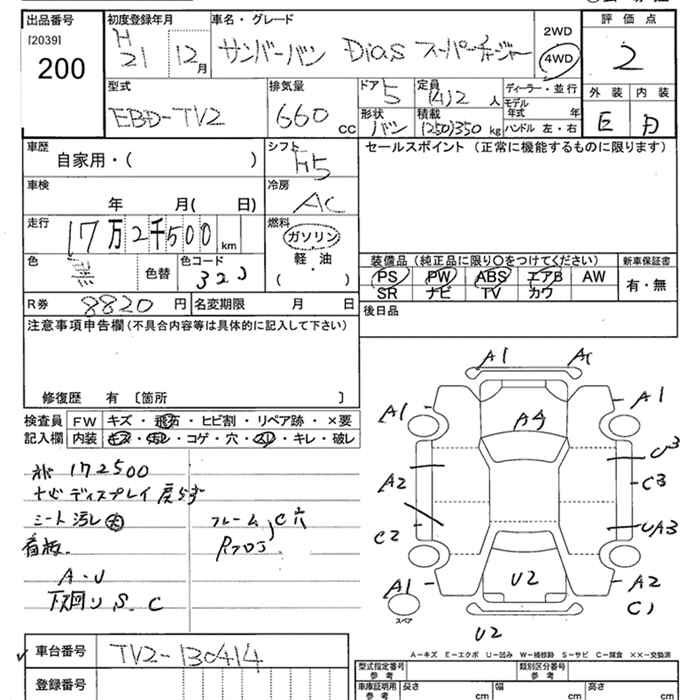 出品番号
[2039]
200
初度登録年月
H
21 12月
車名・グレード
サンバーバン Dias スーパーチャージャー
2WD
4WD
評価点
2
外装 内装
E D
型式
EBD-TV2
排気量
660 cc
ドア 5
形状 バン
定員 (4)2 人
積載 (250)350 kg
ディーラー・並行
モデル年式 年
ハンドル 左・右
車歴
自家用・( )
シフト
H5
セールスポイント (正常に機能するものに限ります)
車検
年 月( 日)
冷房
AC
走行
17万2千500 km
燃料
ガソリン
軽・油
( )
色
黒
色替
色コード
32J
装備品 (純正品に限り○をつけてください)
新車保証書
PS PW ABS エアB AW
SR ナビ TV カワ
有・無
R券 8820 円
名変期限 月 日
後日品
注意事項申告欄 (不具合内容等は具体的に記入して下さい)
修復歴 有 〔箇所 〕
検査員
記入欄
FW キズ・飛石・ヒビ割・リペア跡・×要
内装 キズ・汚レ・コゲ・穴・スレ・キレ・破レ
172500
ディスプレイ
シート汚レ 大
フレーム C穴
看板
A・U
下回り S、C
A1
A1
A4
A1
U3
A2
C3
C2
UA3
A1
U2
A2
C1
U2
スペア
A-キズ E-エクボ U-凹み W-補修跡 S-サビ C-腐食 ××-交換済
車台番号
TV2-130414
登録番号
型式指定番号
参考
類別区分番号
参考
車庫証明用
参考
長さ cm
幅 cm
高さ cm